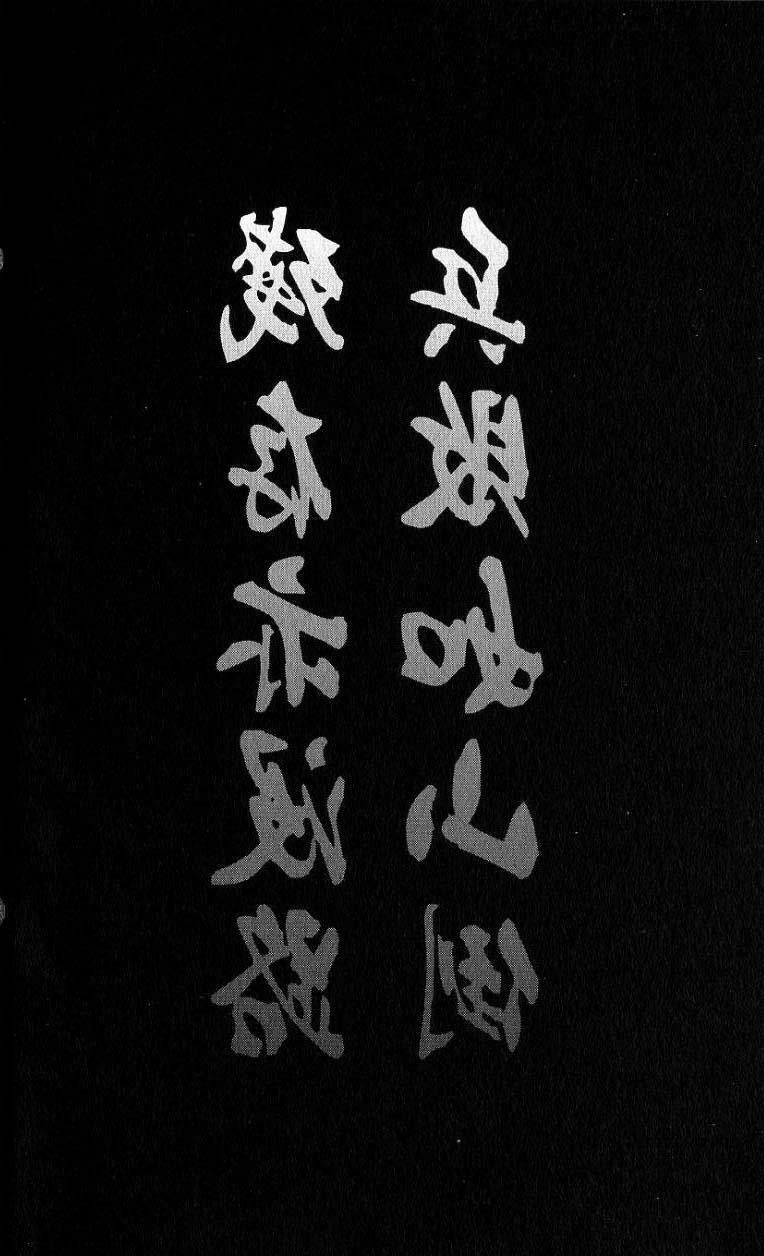 兵敗如山倒
殘存亦沒路